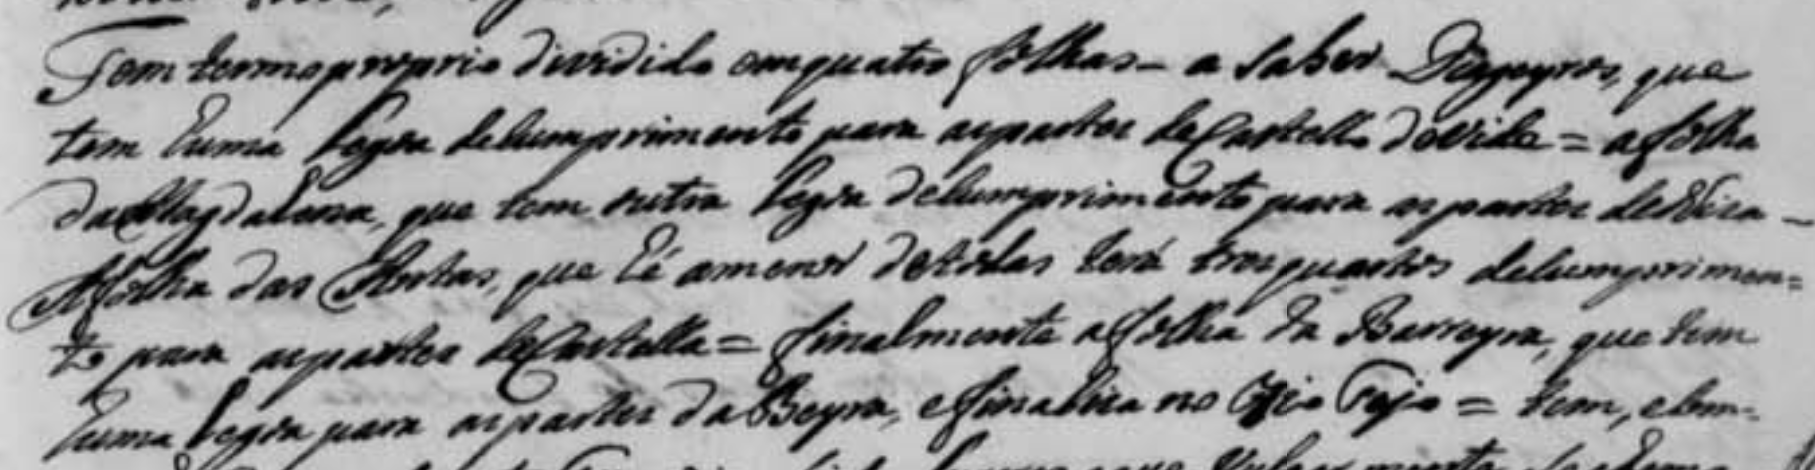 Tem termo proprio dividido em quatro folhas – a saber que
tem huma legoa de cumprimento para as partes de Castello de Vide = a folha
da Magdalena, que tem outra legoa de cumprimento para as partes de Niza –
A folha das Hortas, que hé a menor de todas terá tres quartos de cumprimen=
to para as partes de Castella = finalmente a folha da Barreyra, que tem
huma legoa para as partes da Beyra, e finaliza no Rio Tejo = tem, e